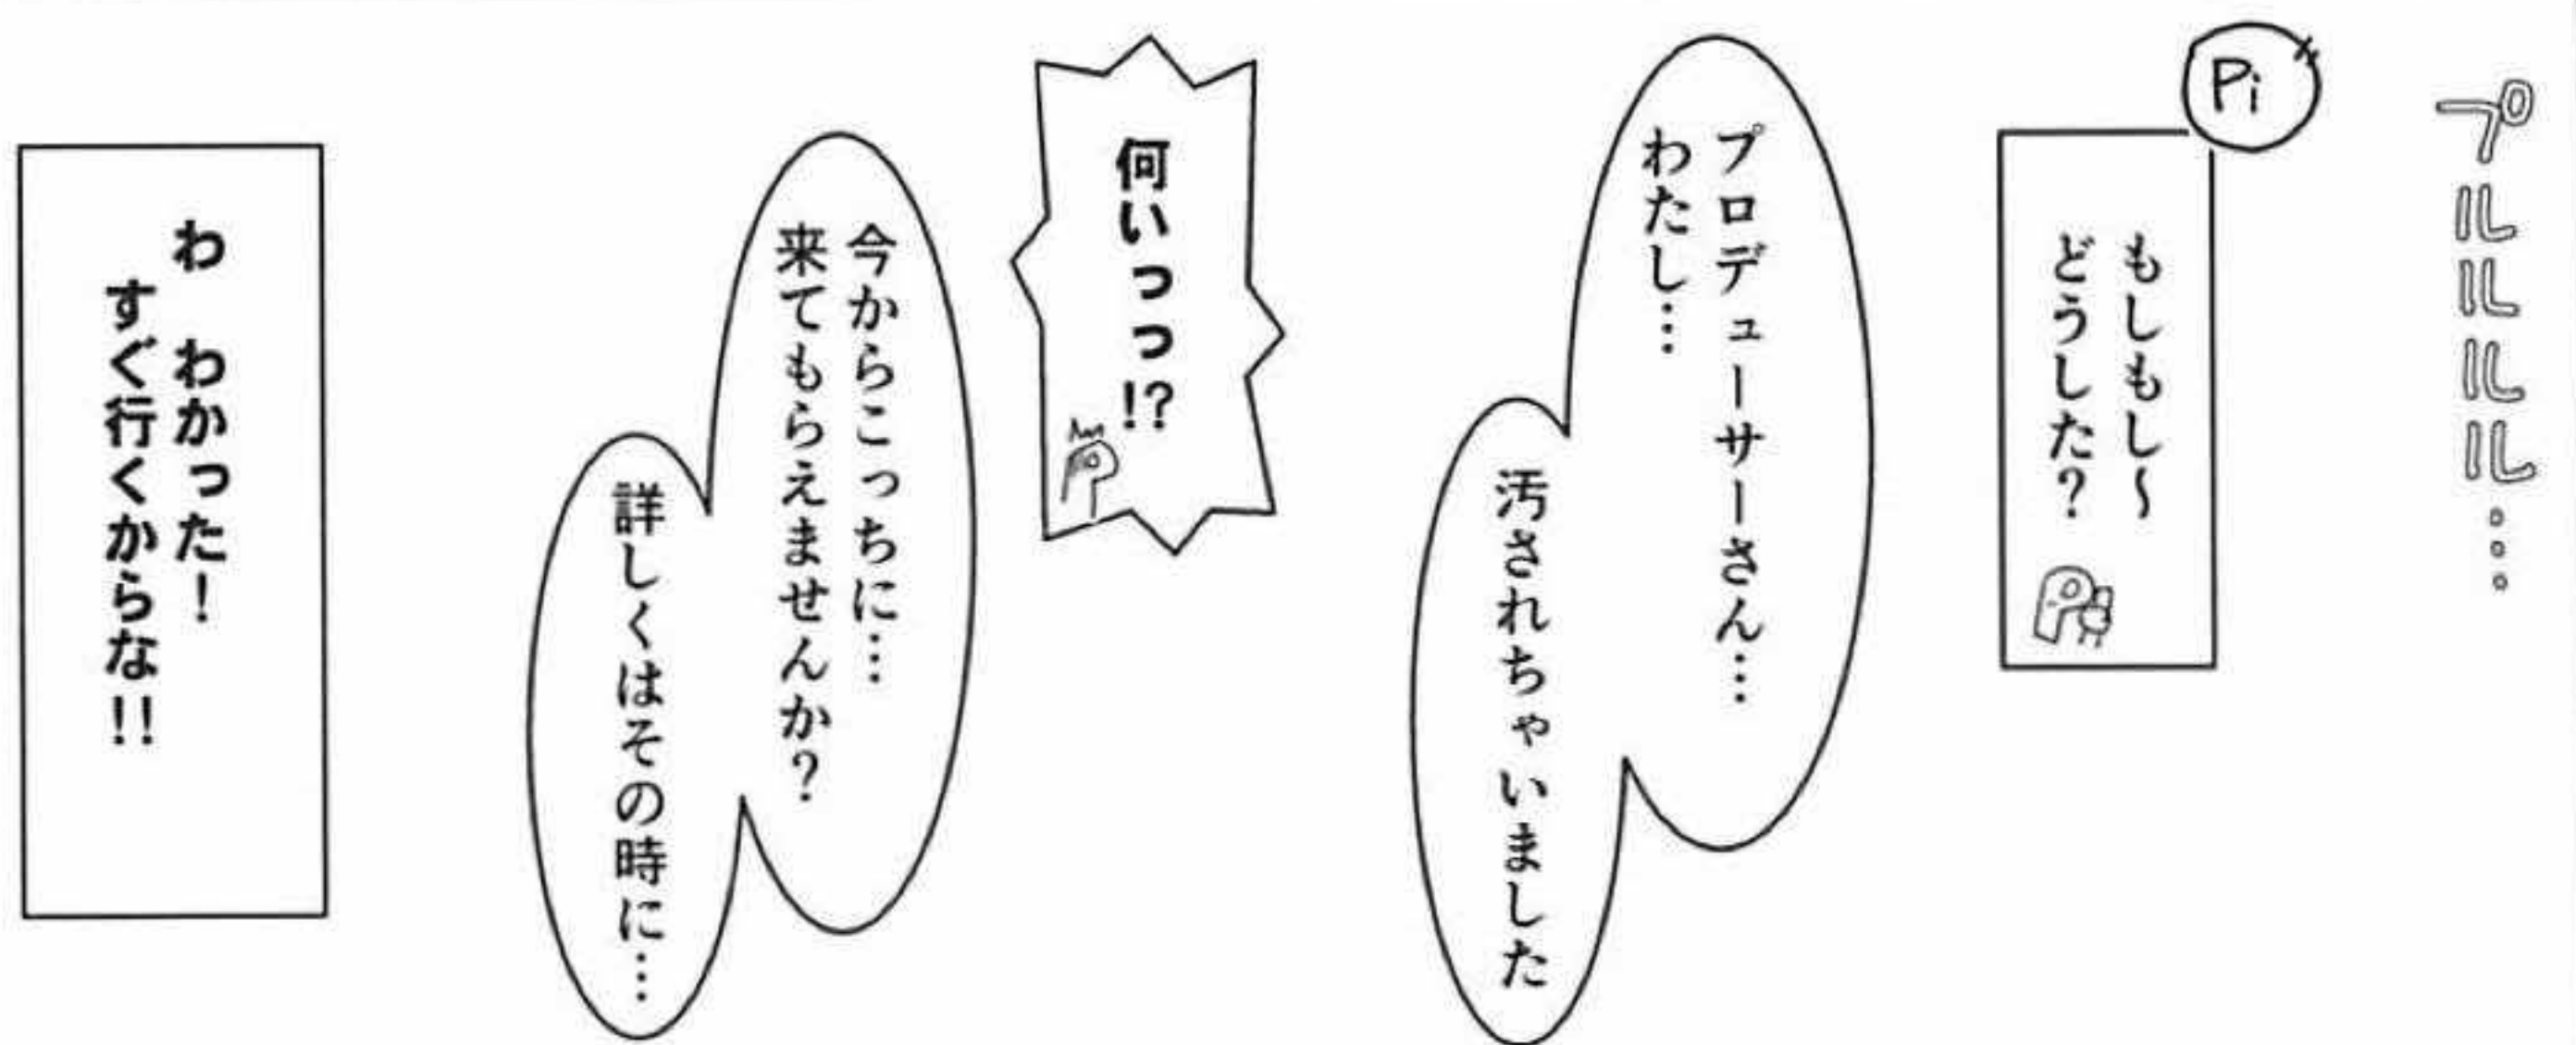 プルルルル…
Pi
もしもし～
どうした？
プロデューサーさん…
わたし…
汚されちゃいました
何いっっ!?
今からこっちに…
来てもらえませんか？
詳しくはその時に…
わ　わかった！
すぐ行くからな!!